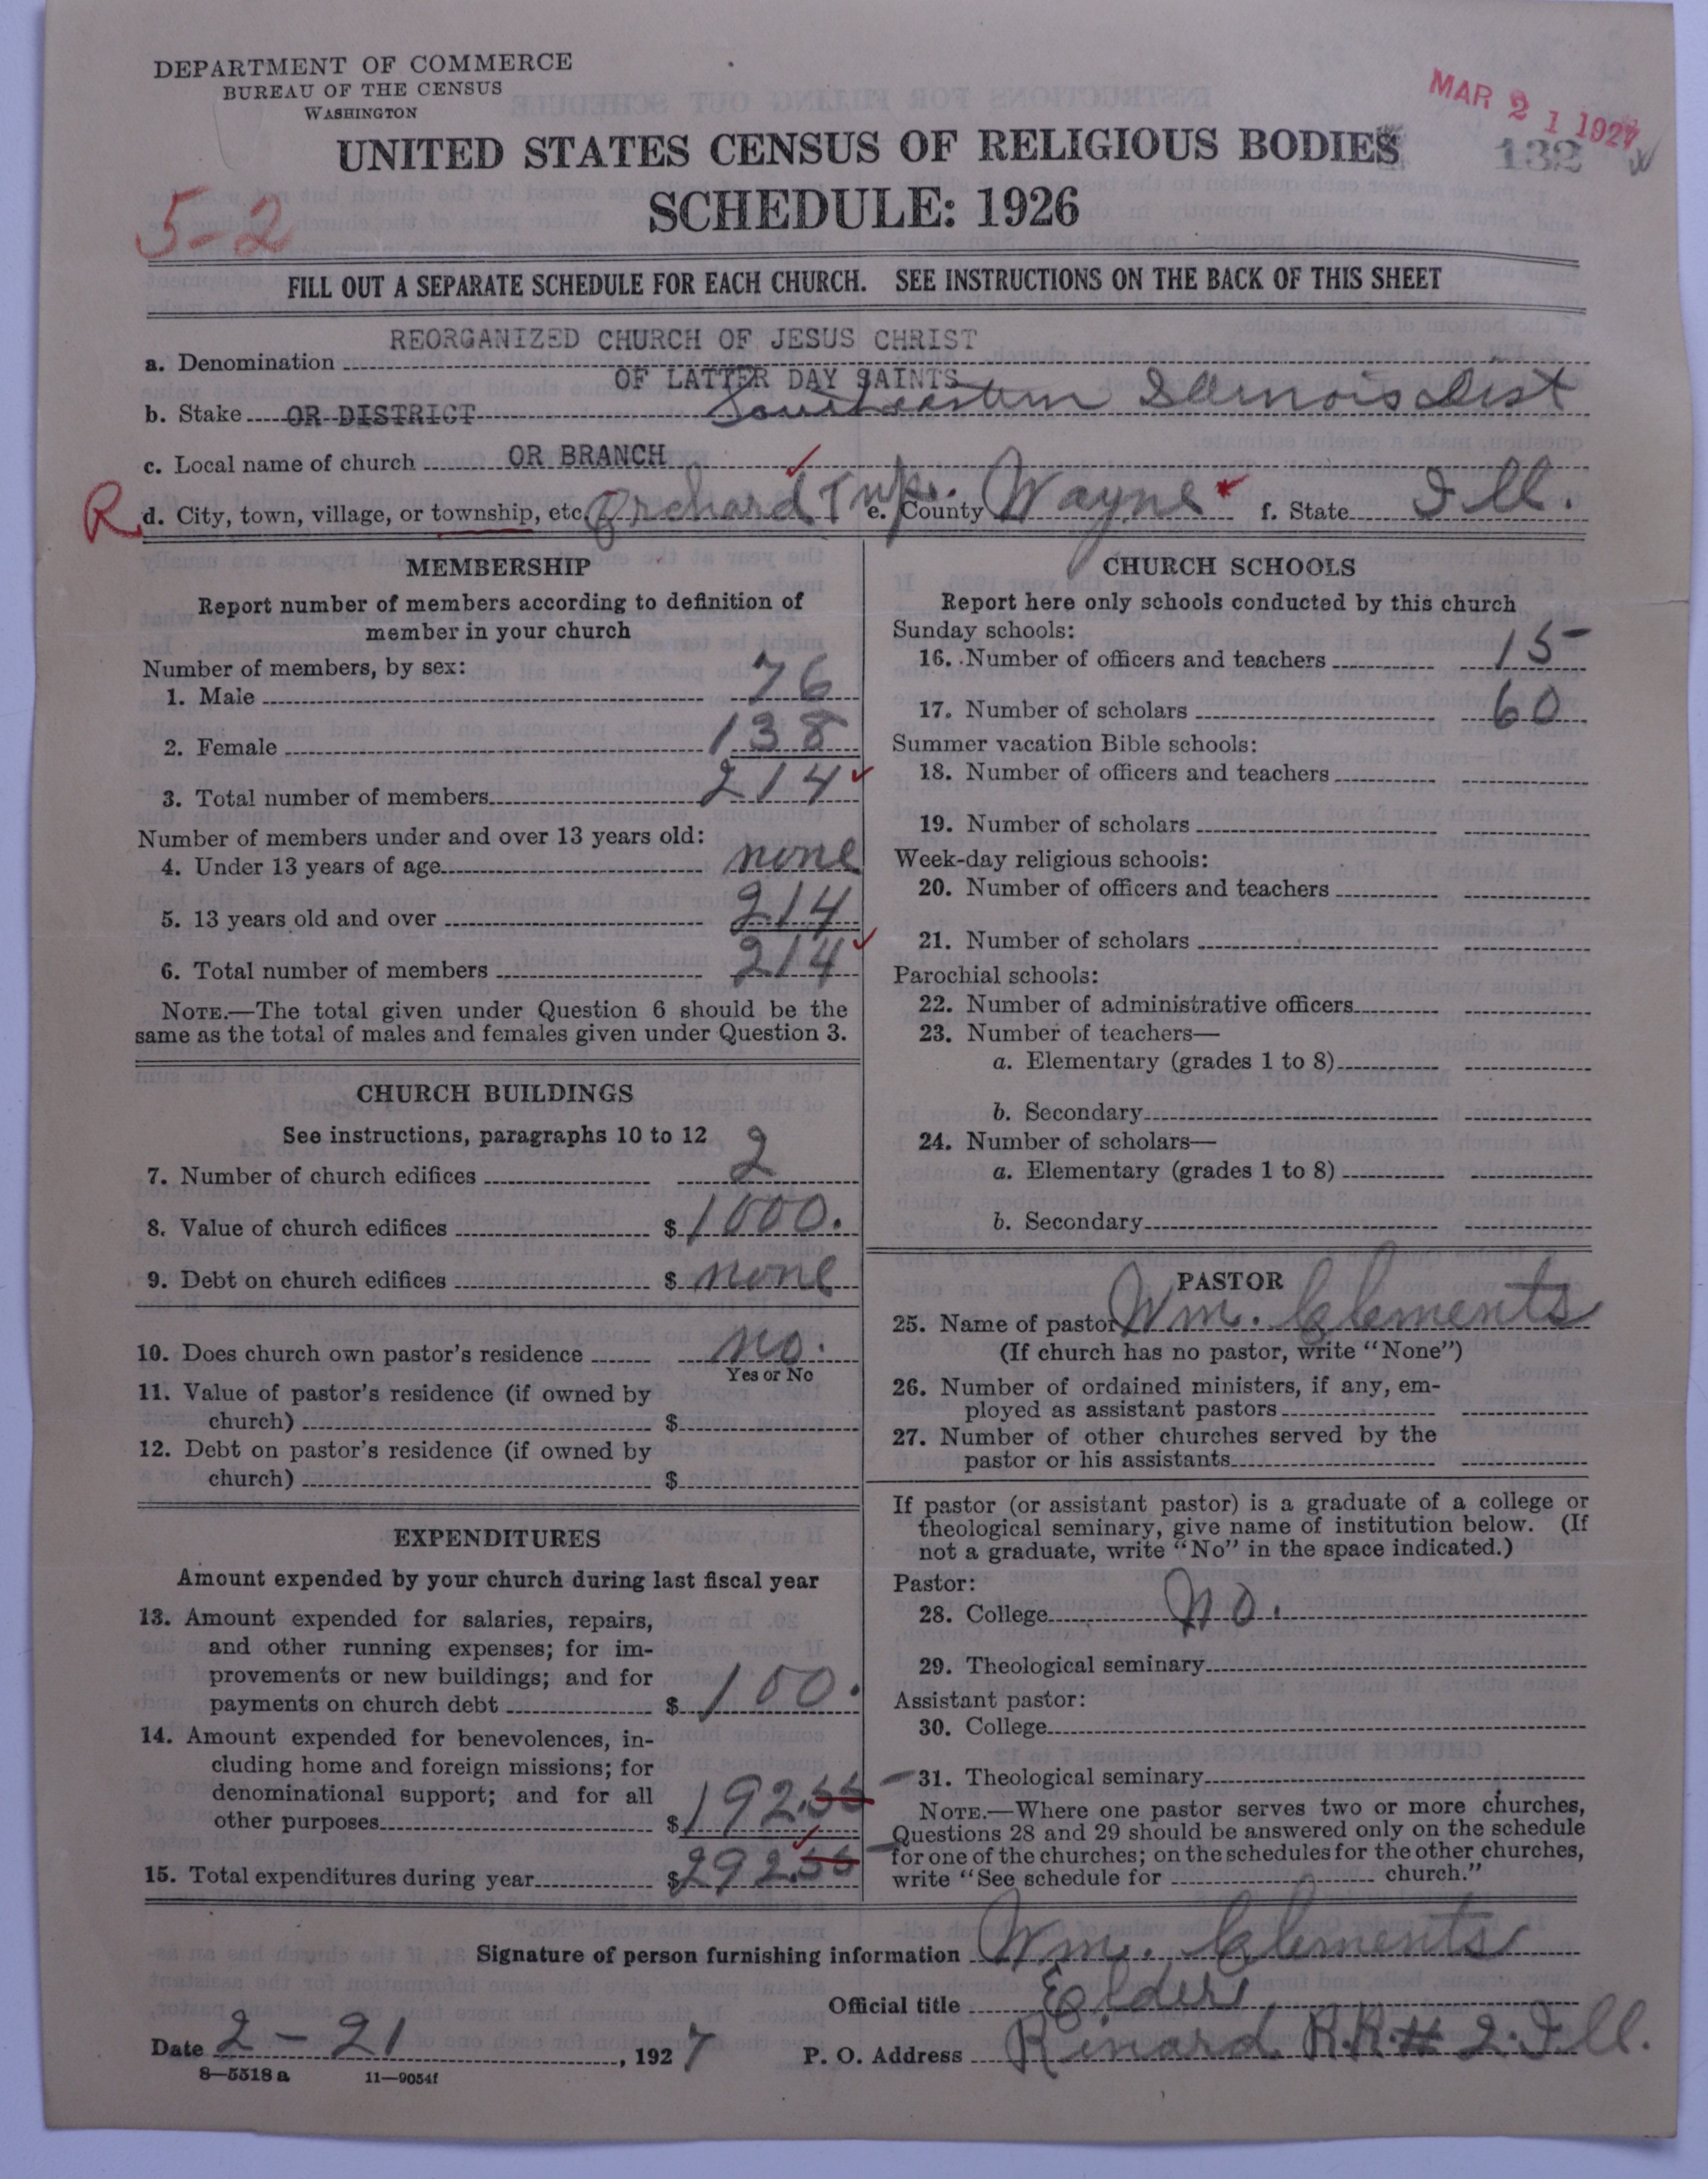 DEPARTMENT OF COMMERCE
BUREAU OF THE CENSUS
WASHINGTON
MAR 21 1927
132
UNITED STATES CENSUS OF RELIGIOUS BODIES
SCHEDULE: 1926
5-2
FILL OUT A SEPARATE SCHEDULE FOR EACH CHURCH. SEE INSTRUCTIONS ON THE BACK OF THIS SHEET
REORGANIZED CHURCH OF JESUS CHRIST
a. Denomination
OF LATTER DAY SAINTS
b. Stake OR DISTRICT Southeastern Illinois Dist
c. Local name of church OR BRANCH
R d. City, town, village, or township, etc Orchard Twp. e. County Wayne f. State Ill.
MEMBERSHIP
Report number of members according to definition of
member in your church
Number of members, by sex:
1. Male 76
2. Female 138
3. Total number of members 214
Number of members under and over 13 years old:
4. Under 13 years of age none
5. 13 years old and over 214
6. Total number of members 214
NOTE.—The total given under Question 6 should be the
same as the total of males and females given under Question 3.
CHURCH BUILDINGS
See instructions, paragraphs 10 to 12
7. Number of church edifices 2
8. Value of church edifices $ 1000.
9. Debt on church edifices $ none
10. Does church own pastor's residence no.
Yes or No
11. Value of pastor's residence (if owned by
church) $
12. Debt on pastor's residence (if owned by
church) $
EXPENDITURES
Amount expended by your church during last fiscal year
13. Amount expended for salaries, repairs,
and other running expenses; for im-
provements or new buildings; and for
payments on church debt $ 100.
14. Amount expended for benevolences, in-
cluding home and foreign missions; for
denominational support; and for all
other purposes $ 192.55
15. Total expenditures during year $ 292.55
CHURCH SCHOOLS
Report here only schools conducted by this church
Sunday schools:
16. Number of officers and teachers 15
17. Number of scholars 60
Summer vacation Bible schools:
18. Number of officers and teachers
19. Number of scholars
Week-day religious schools:
20. Number of officers and teachers
21. Number of scholars
Parochial schools:
22. Number of administrative officers
23. Number of teachers—
a. Elementary (grades 1 to 8)
b. Secondary
24. Number of scholars—
a. Elementary (grades 1 to 8)
b. Secondary
PASTOR
25. Name of pastor Wm. Clements
(If church has no pastor, write "None")
26. Number of ordained ministers, if any, em-
ployed as assistant pastors
27. Number of other churches served by the
pastor or his assistants
If pastor (or assistant pastor) is a graduate of a college or
theological seminary, give name of institution below. (If
not a graduate, write "No" in the space indicated.)
Pastor:
28. College No.
29. Theological seminary
Assistant pastor:
30. College
31. Theological seminary
NOTE.—Where one pastor serves two or more churches,
Questions 28 and 29 should be answered only on the schedule
for one of the churches; on the schedules for the other churches,
write "See schedule for church."
Signature of person furnishing information Wm. Clements
Official title Elder
Date 2-21, 1927 P. O. Address Rinard R.R.# 2. Ill.
8—5518 a 11—9054f